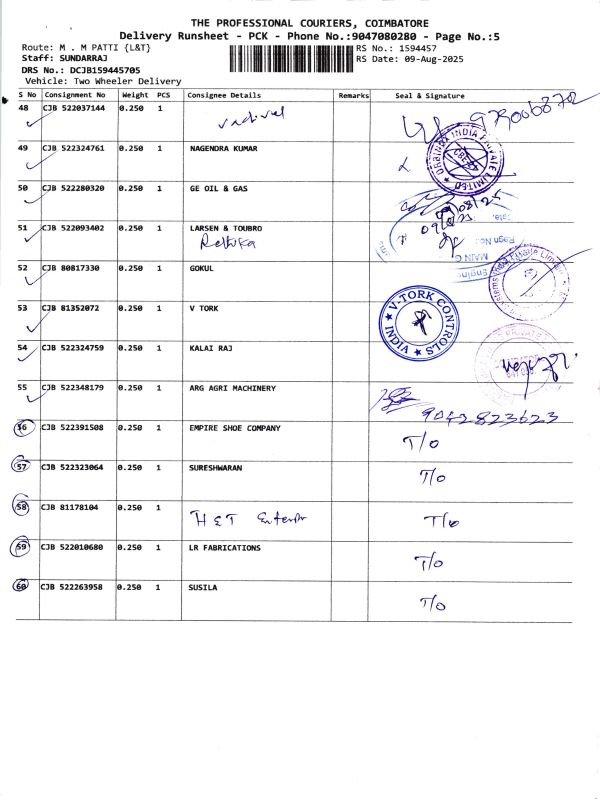 THE PROFESSIONAL COURIERS, COIMBATORE
Delivery Runsheet - PCK - Phone No.:9047080280 - Page No.:5
Route: M . M PATTI {L&T}
RS No.: 1594457
Staff: SUNDARRAJ
RS Date: 09-Aug-2025
DRS No.: DCJB159445705
Vehicle: Two Wheeler Delivery
S No Consignment No Weight PCS Consignee Details Remarks Seal & Signature
48 CJB 522037144 0.250 1
49 CJB 522324761 0.250 1 NAGENDRA KUMAR
50 CJB 522280320 0.250 1 GE OIL & GAS
09/08/25
51 CJB 522093402 0.250 1 LARSEN & TOUBRO
52 CJB 80817330 0.250 1 GOKUL
53 CJB 81352072 0.250 1 V TORK
V-TORK CONTROLS
INDIA
54 CJB 522324759 0.250 1 KALAI RAJ
55 CJB 522348179 0.250 1 ARG AGRI MACHINERY
9042823623
56 CJB 522391508 0.250 1 EMPIRE SHOE COMPANY T/o
57 CJB 522323064 0.250 1 SURESHWARAN T/o
58 CJB 81178104 0.250 1 H&T T/o
59 CJB 522010680 0.250 1 LR FABRICATIONS T/o
60 CJB 522263958 0.250 1 SUSILA T/o